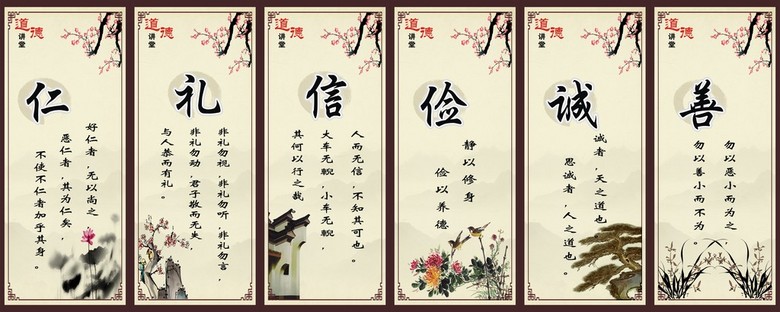 道德
讲堂
仁
好仁者，无以尚之
恶仁者，其为仁矣，
不使不仁者加乎其身。
道德
讲堂
礼
非礼勿视，非礼勿听，非礼勿言，
非礼勿动，君子敬而无失，
与人恭而有礼。
道德
讲堂
信
人而无信，不知其可也。
大车无輗，小车无軏，
其何以行之哉
道德
讲堂
俭
静以修身
俭以养德
道德
讲堂
诚
诚者，天之道也
思诚者，人之道也。
道德
讲堂
善
勿以恶小而为之
勿以善小而不为。